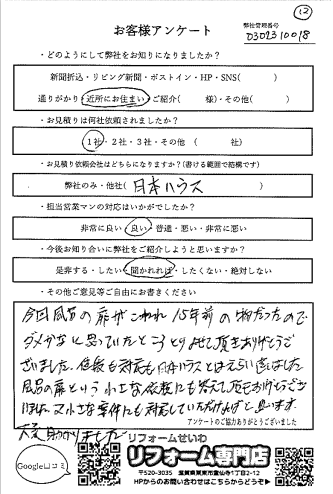 ⑫
お客様アンケート
弊社管理番号
0302310018
・どのようにして弊社をお知りになりましたか?
新聞折込・リビング新聞・ポストイン・HP・SNS( )
通りがかり・近所にお住まい・ご紹介( 様)・その他( )
・お見積りは何社依頼されましたか?
1社・2社・3社・その他 ( 社)
・お見積り依頼会社はどちらになりますか?(書ける範囲で結構です)
弊社のみ・他社( 日本ハウス )
・担当営業マンの対応はいかがでしたか?
非常に良い・良い・普通・悪い・非常に悪い
・今後お知り合いに弊社をご紹介しようと思いますか?
是非する・したい・聞かれれば・したくない・絶対しない
・その他ご意見等ご自由にお書きください
今回風呂の扉がこわれ 15年前の物だったので
ダメかなと思っていたところ
ざいました
風呂の扉という小さな
アンケートのご協力ありがとうございました
大変助かりました
Google口コミ
リフォームせいわ
リフォーム専門店
〒520-3035 滋賀県栗東市霊仙寺1丁目2-12
HPからのお問い合わせはこちらからどうぞ►